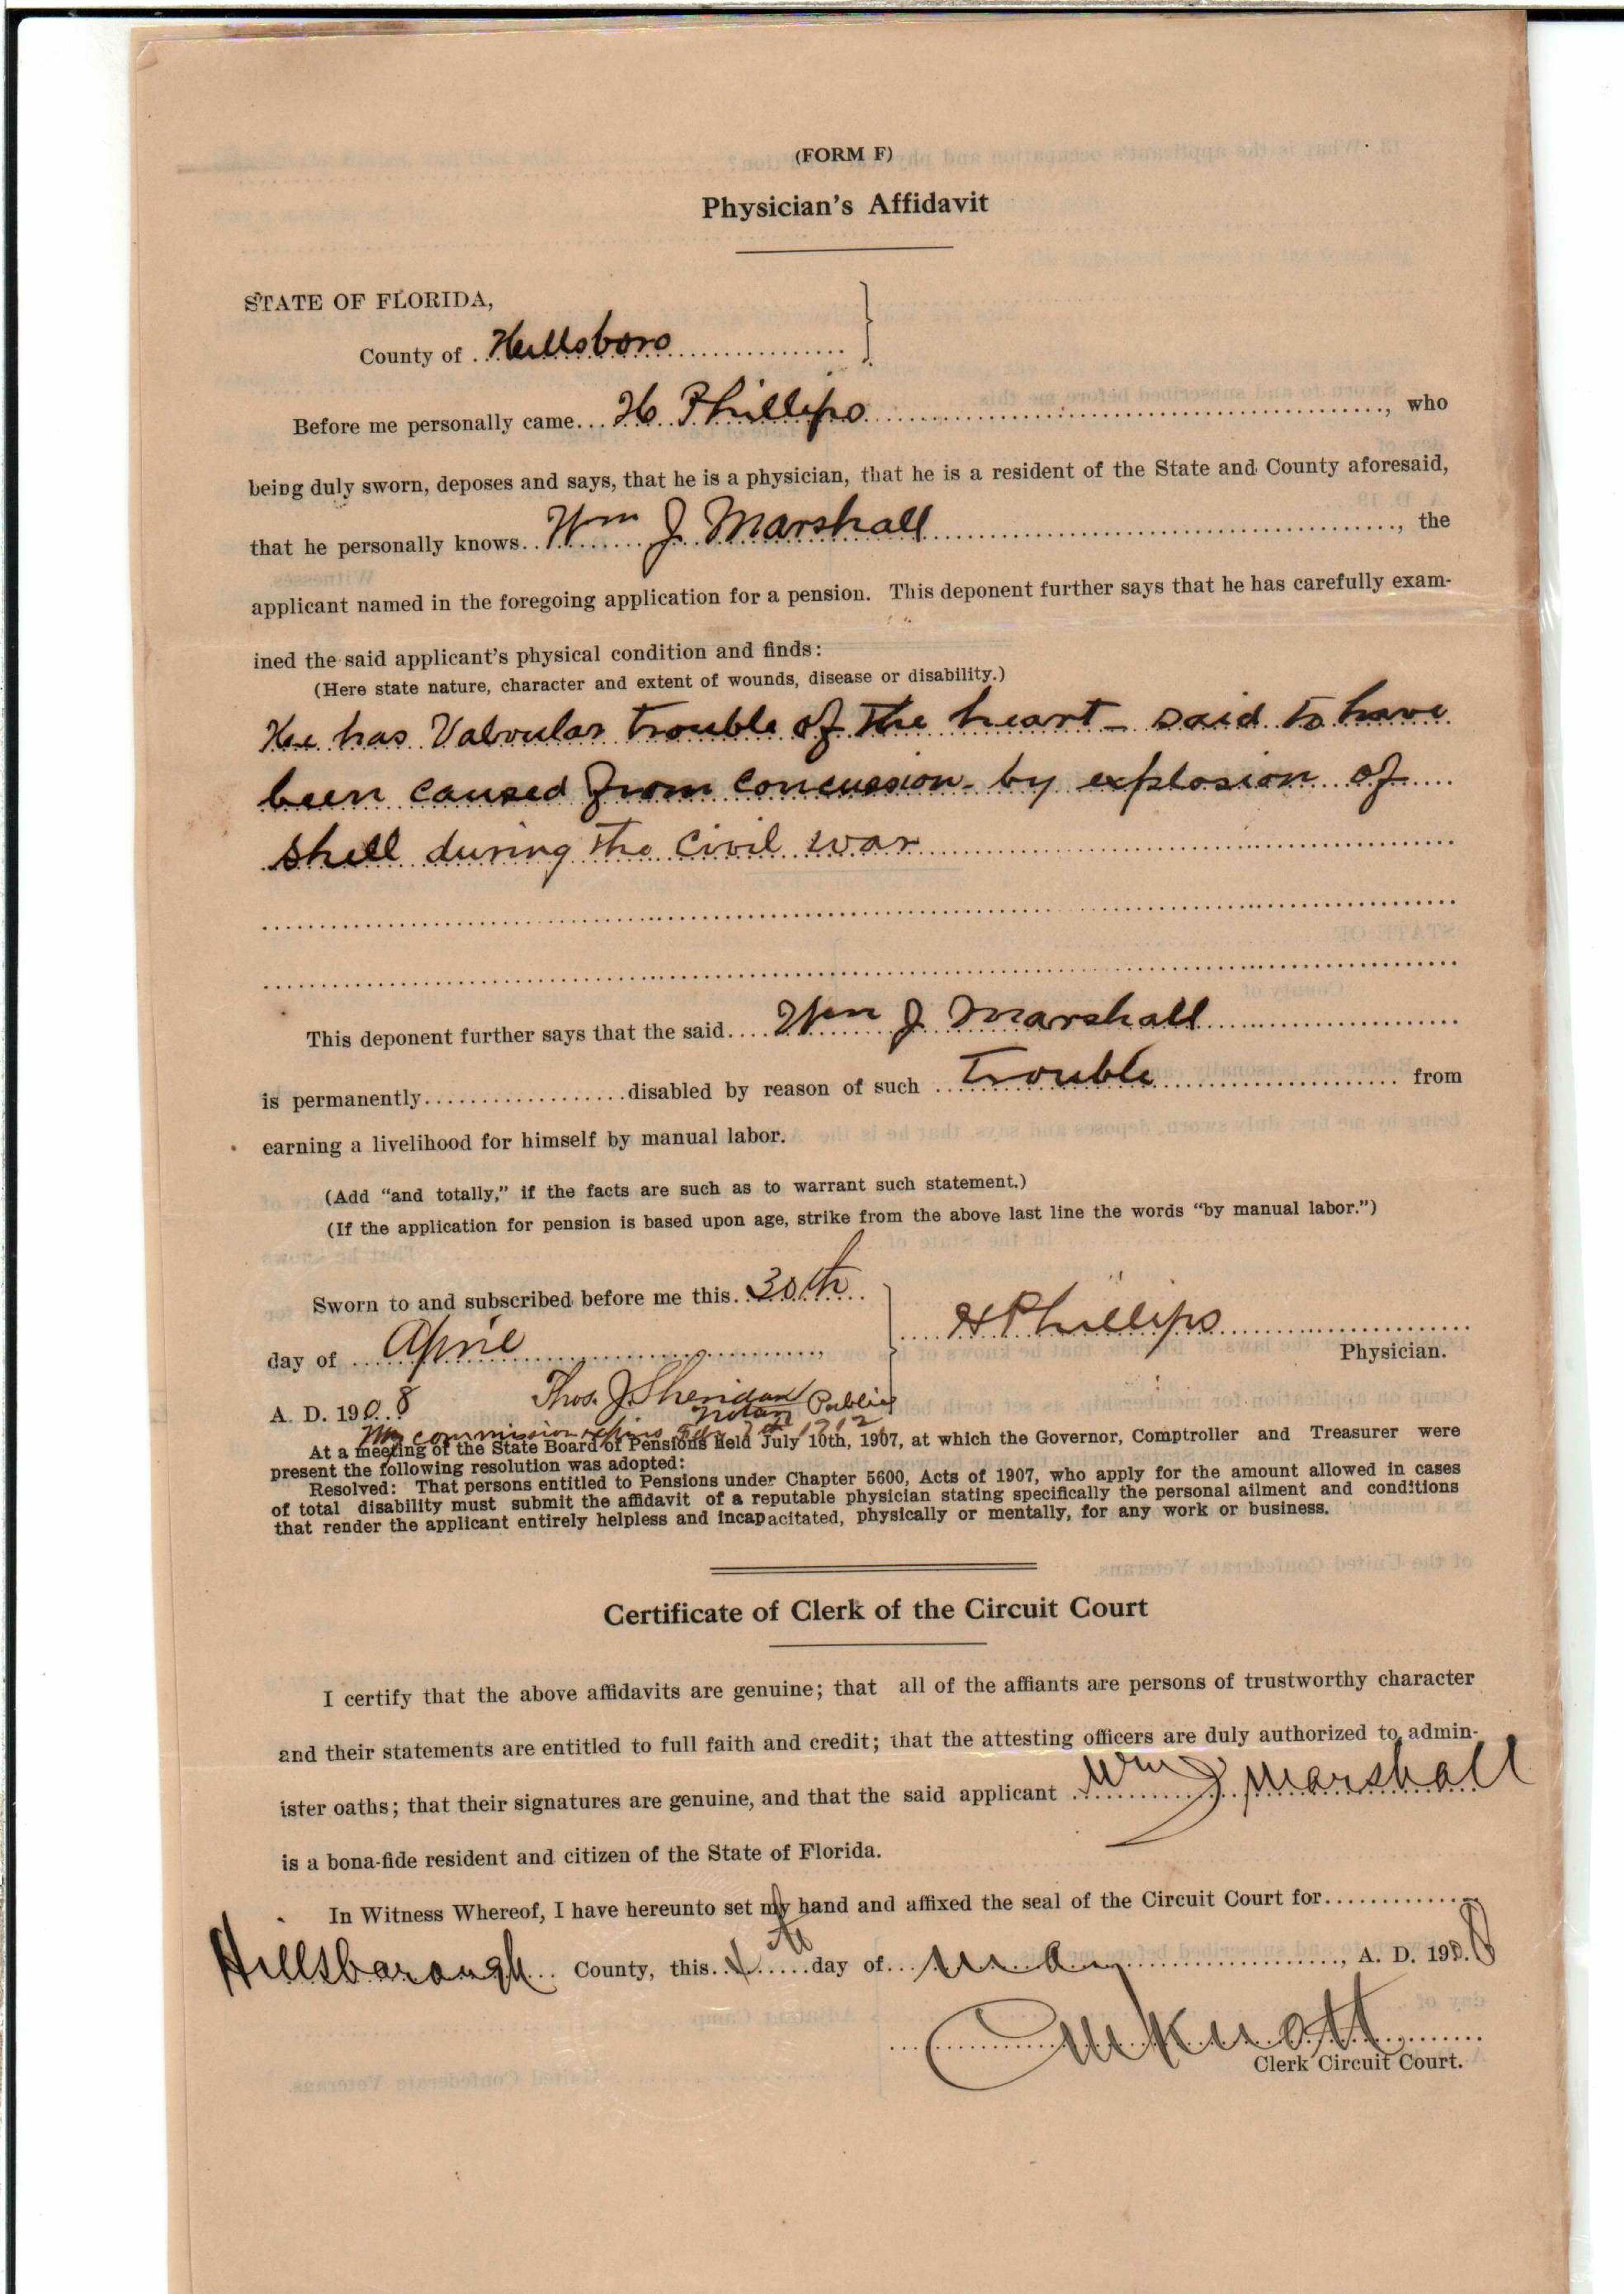 (FORM F)
Physician's Affidavit
STATE OF FLORIDA,
County of Hillsboro
Before me personally came H Phillips, who
being duly sworn, deposes and says, that he is a physician, that he is a resident of the State and County aforesaid,
that he personally knows Wm J Marshall, the
applicant named in the foregoing application for a pension. This deponent further says that he has carefully exam-
ined the said applicant's physical condition and finds:
(Here state nature, character and extent of wounds, disease or disability.)
He has Valvular trouble of the heart – said to have
been caused from concussion by explosion of
shell during the civil war
This deponent further says that the said Wm J Marshall
is permanently disabled by reason of such trouble from
earning a livelihood for himself by manual labor.
(Add "and totally," if the facts are such as to warrant such statement.)
(If the application for pension is based upon age, strike from the above last line the words "by manual labor.")
Sworn to and subscribed before me this 30th
day of April
H Phillips
Physician.
A. D. 1908
Thos. J. Sheridan
Notary Public
My commission expires 1912
At a meeting of the State Board of Pensions held July 10th, 1907, at which the Governor, Comptroller and Treasurer were
present the following resolution was adopted:
Resolved: That persons entitled to Pensions under Chapter 5600, Acts of 1907, who apply for the amount allowed in cases
of total disability must submit the affidavit of a reputable physician stating specifically the personal ailment and conditions
that render the applicant entirely helpless and incapacitated, physically or mentally, for any work or business.
Certificate of Clerk of the Circuit Court
I certify that the above affidavits are genuine; that all of the affiants are persons of trustworthy character
and their statements are entitled to full faith and credit; that the attesting officers are duly authorized to admin-
ister oaths; that their signatures are genuine, and that the said applicant Wm J Marshall
is a bona-fide resident and citizen of the State of Florida.
In Witness Whereof, I have hereunto set my hand and affixed the seal of the Circuit Court for
Hillsborough County, this day of May, A. D. 1908
Knott
Clerk Circuit Court.